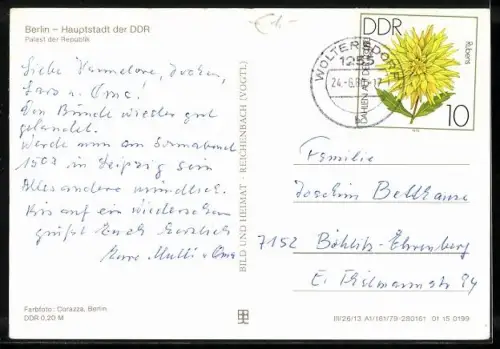 Berlin – Hauptstadt der DDR
Palast der Republik
Liebe Hannelore, Jochen,
Lars u. Oma!
Den Bünde wieder gut
gelandet.
Werde nun am Sonnabend
1503 in Leipzig sein
Alles andere mündlich.
Bis auf ein Wiedersehen
grüßt Euch herzlich
Eure Mutti u. Oma
Farbfoto: Durazza, Berlin
DDR 0,20 M
BILD UND HEIMAT · REICHENBACH (VOGTL)
WOLTERSDORF
1255
24.-6.80-17
DDR
Rubens
DAHLIEN AUF DER
10
Familie
Joachim
7152 Böhlitz-Ehrenberg
E. Thälmannstr. 94
III/26/13 A1/181/79-280161 01 15 0199